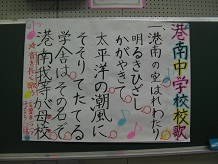 港南中学校校歌
一、港南の空はれわたり
明るきひざし
かがやきて
太平洋の潮風に
そそりたてる
学舎はその名
港南我等が母校